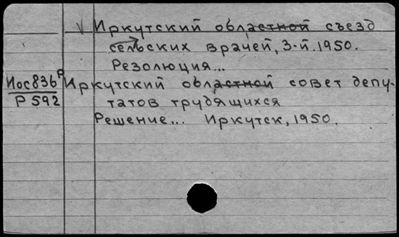 √ Иркутский областной съезд
сельских врачей, 3-й. 1950.
Резолюция...
Иос836 Р Иркутский областной совет депу-
Р592 татов трудящихся
Решение... Иркутск, 1950.